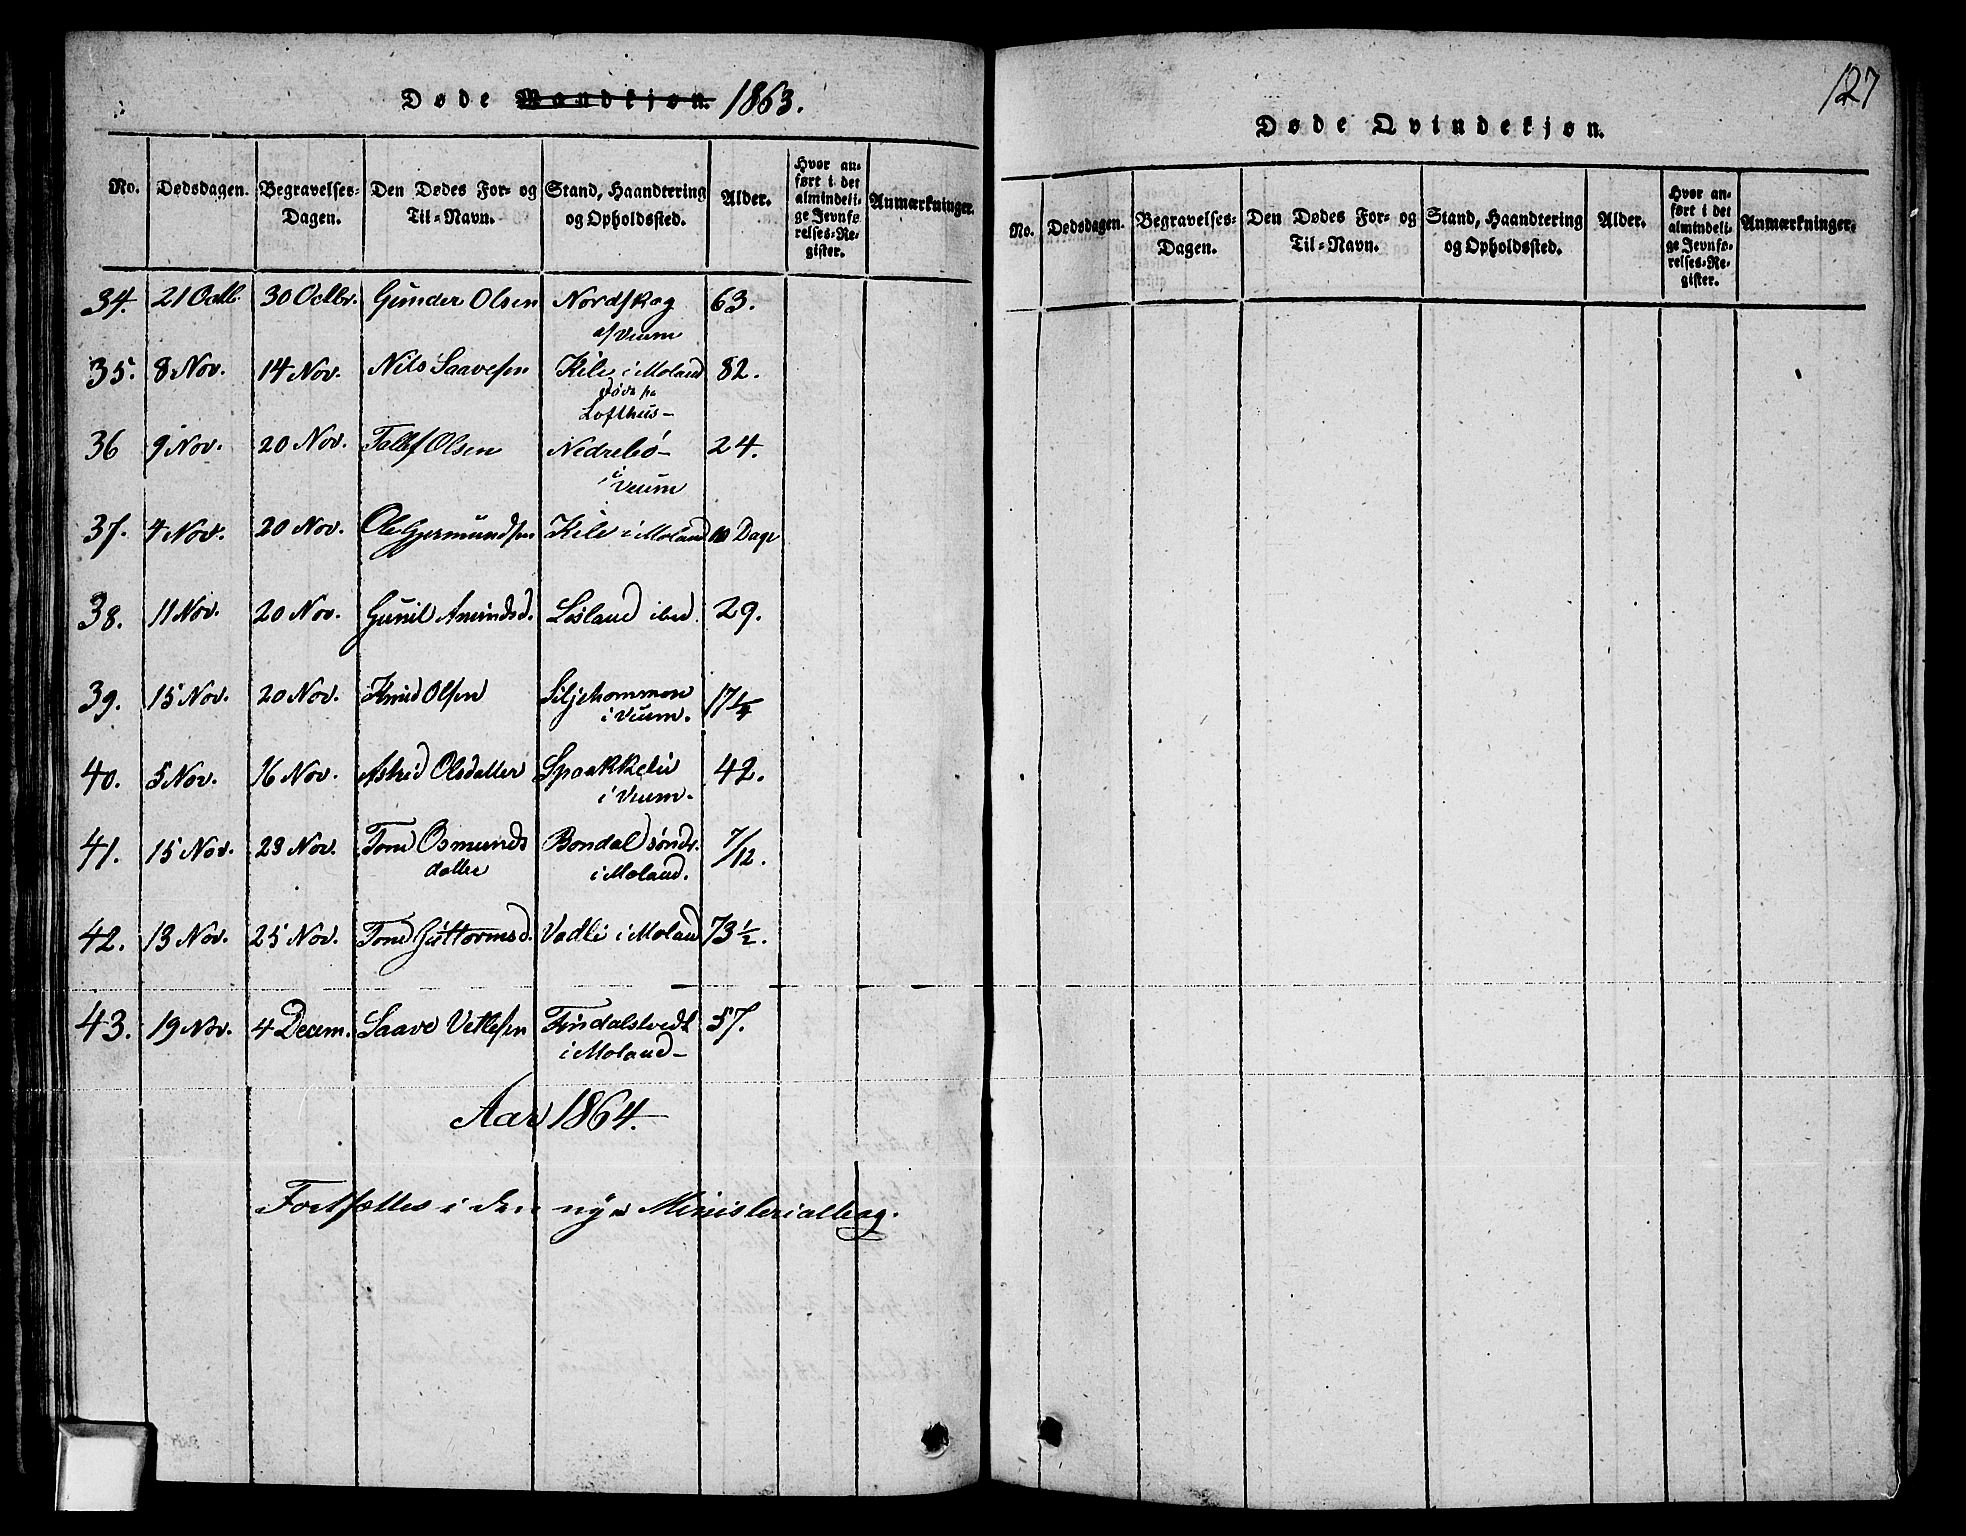 Døde Mandkjøn. 1863.
No. Dødsdagen. Begravelses-Dagen. Den Dødes For- og Til-Navn. Stand, Haandtering og Opholdssted. Alder. Hvor anført i det almindelige Jevnførelses-Register. Anmærkninger.
34. 21 Octb. 30 Octbr. Gunder Olsen Nordskog 63.
af Veum
35. 8 Nov. 14 Nov. Nils Saavesen Kile i Moland 82.
døde pa
Lofthus-
36 9 Nov. 20 Nov. Tallef Olsen Nedrebö- 24.
i Veum
37. 4 Nov. 20 Nov. Ole Gjermundsen Kile i Moland 10 Dage
38. 11 Nov. 20 Nov. Gunil Anundsd. Lösland ibid. 29.
39. 15 Nov. 20 Nov. Knud Olsen Siljehommen 17 1/4
i Veum.
40. 5 Nov. 16 Nov. Astrid Olsdatter Spaakkelie 42.
i Veum.
41. 15 Nov. 23 Nov. Tone Osmunds Bondal söndr. 7/12.
datter i Moland.
42. 13 Nov. 25 Nov. Tone Guttormsd. Vadli i Moland 73 1/2.
43. 19 Nov. 4 Decem. Saave Vetlesen Findalstvedt 57.
i Moland-
Aar 1864.
Fortsættes i den nye Ministerialbog.
127
Døde Qvindekjøn.
No. Dødsdagen. Begravelses-Dagen. Den Dødes For- og Til-Navn. Stand, Haandtering og Opholdssted. Alder. Hvor anført i det almindelige Jevnførelses-Register. Anmærkninger.